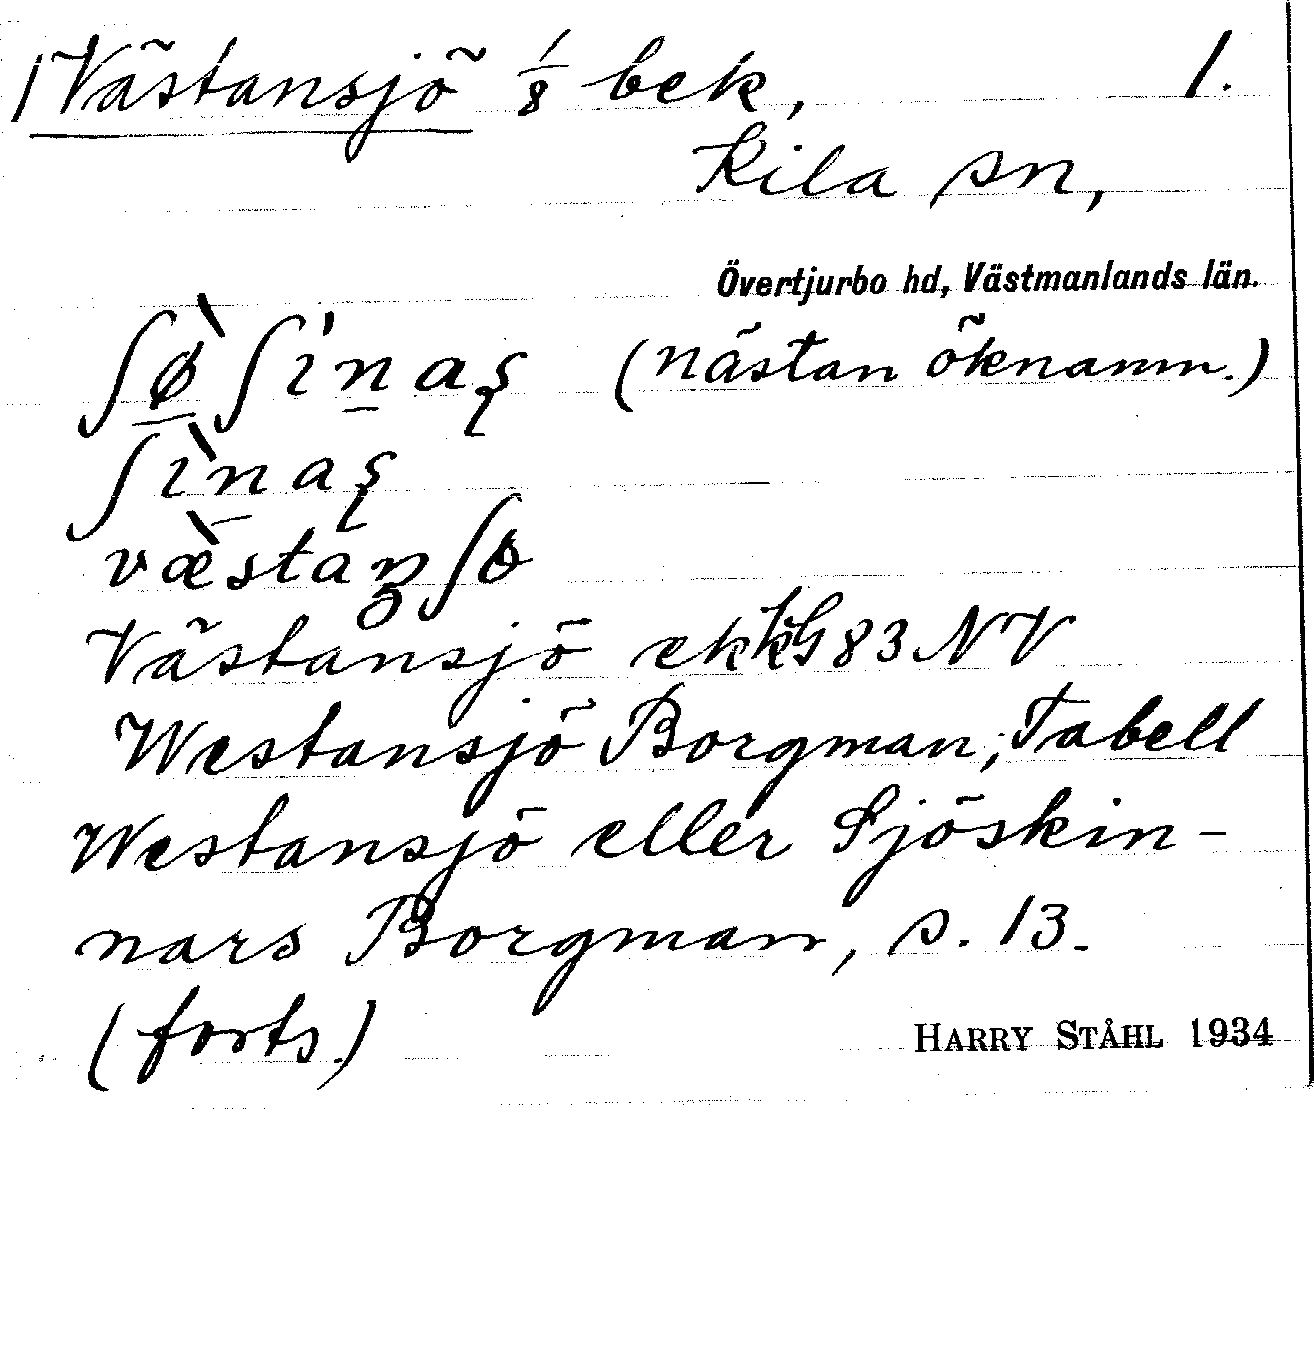 1 Västansjö 1/8 bek, 1.
Kila sn,
Övertjurbo hd, Västmanlands län.
ʃø̀ʃinaʂ (nästan öknamn.)
ʃìnaʂ
væ̀stanʃö
Västansjö ekkkG 83 NV
Westansjö Borgman, Tabell
Westansjö eller Sjöskin-
nars Borgman, s. 13.
(forts.) HARRY STÅHL 1934